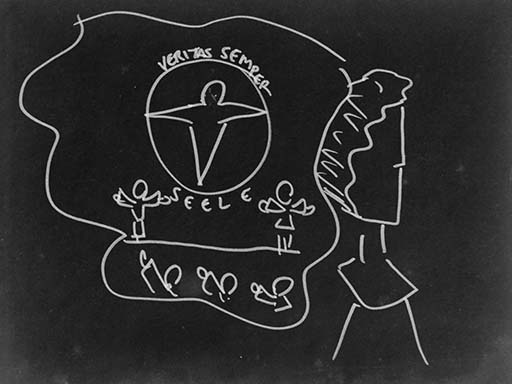 VERITAS SEMPER
SEELE